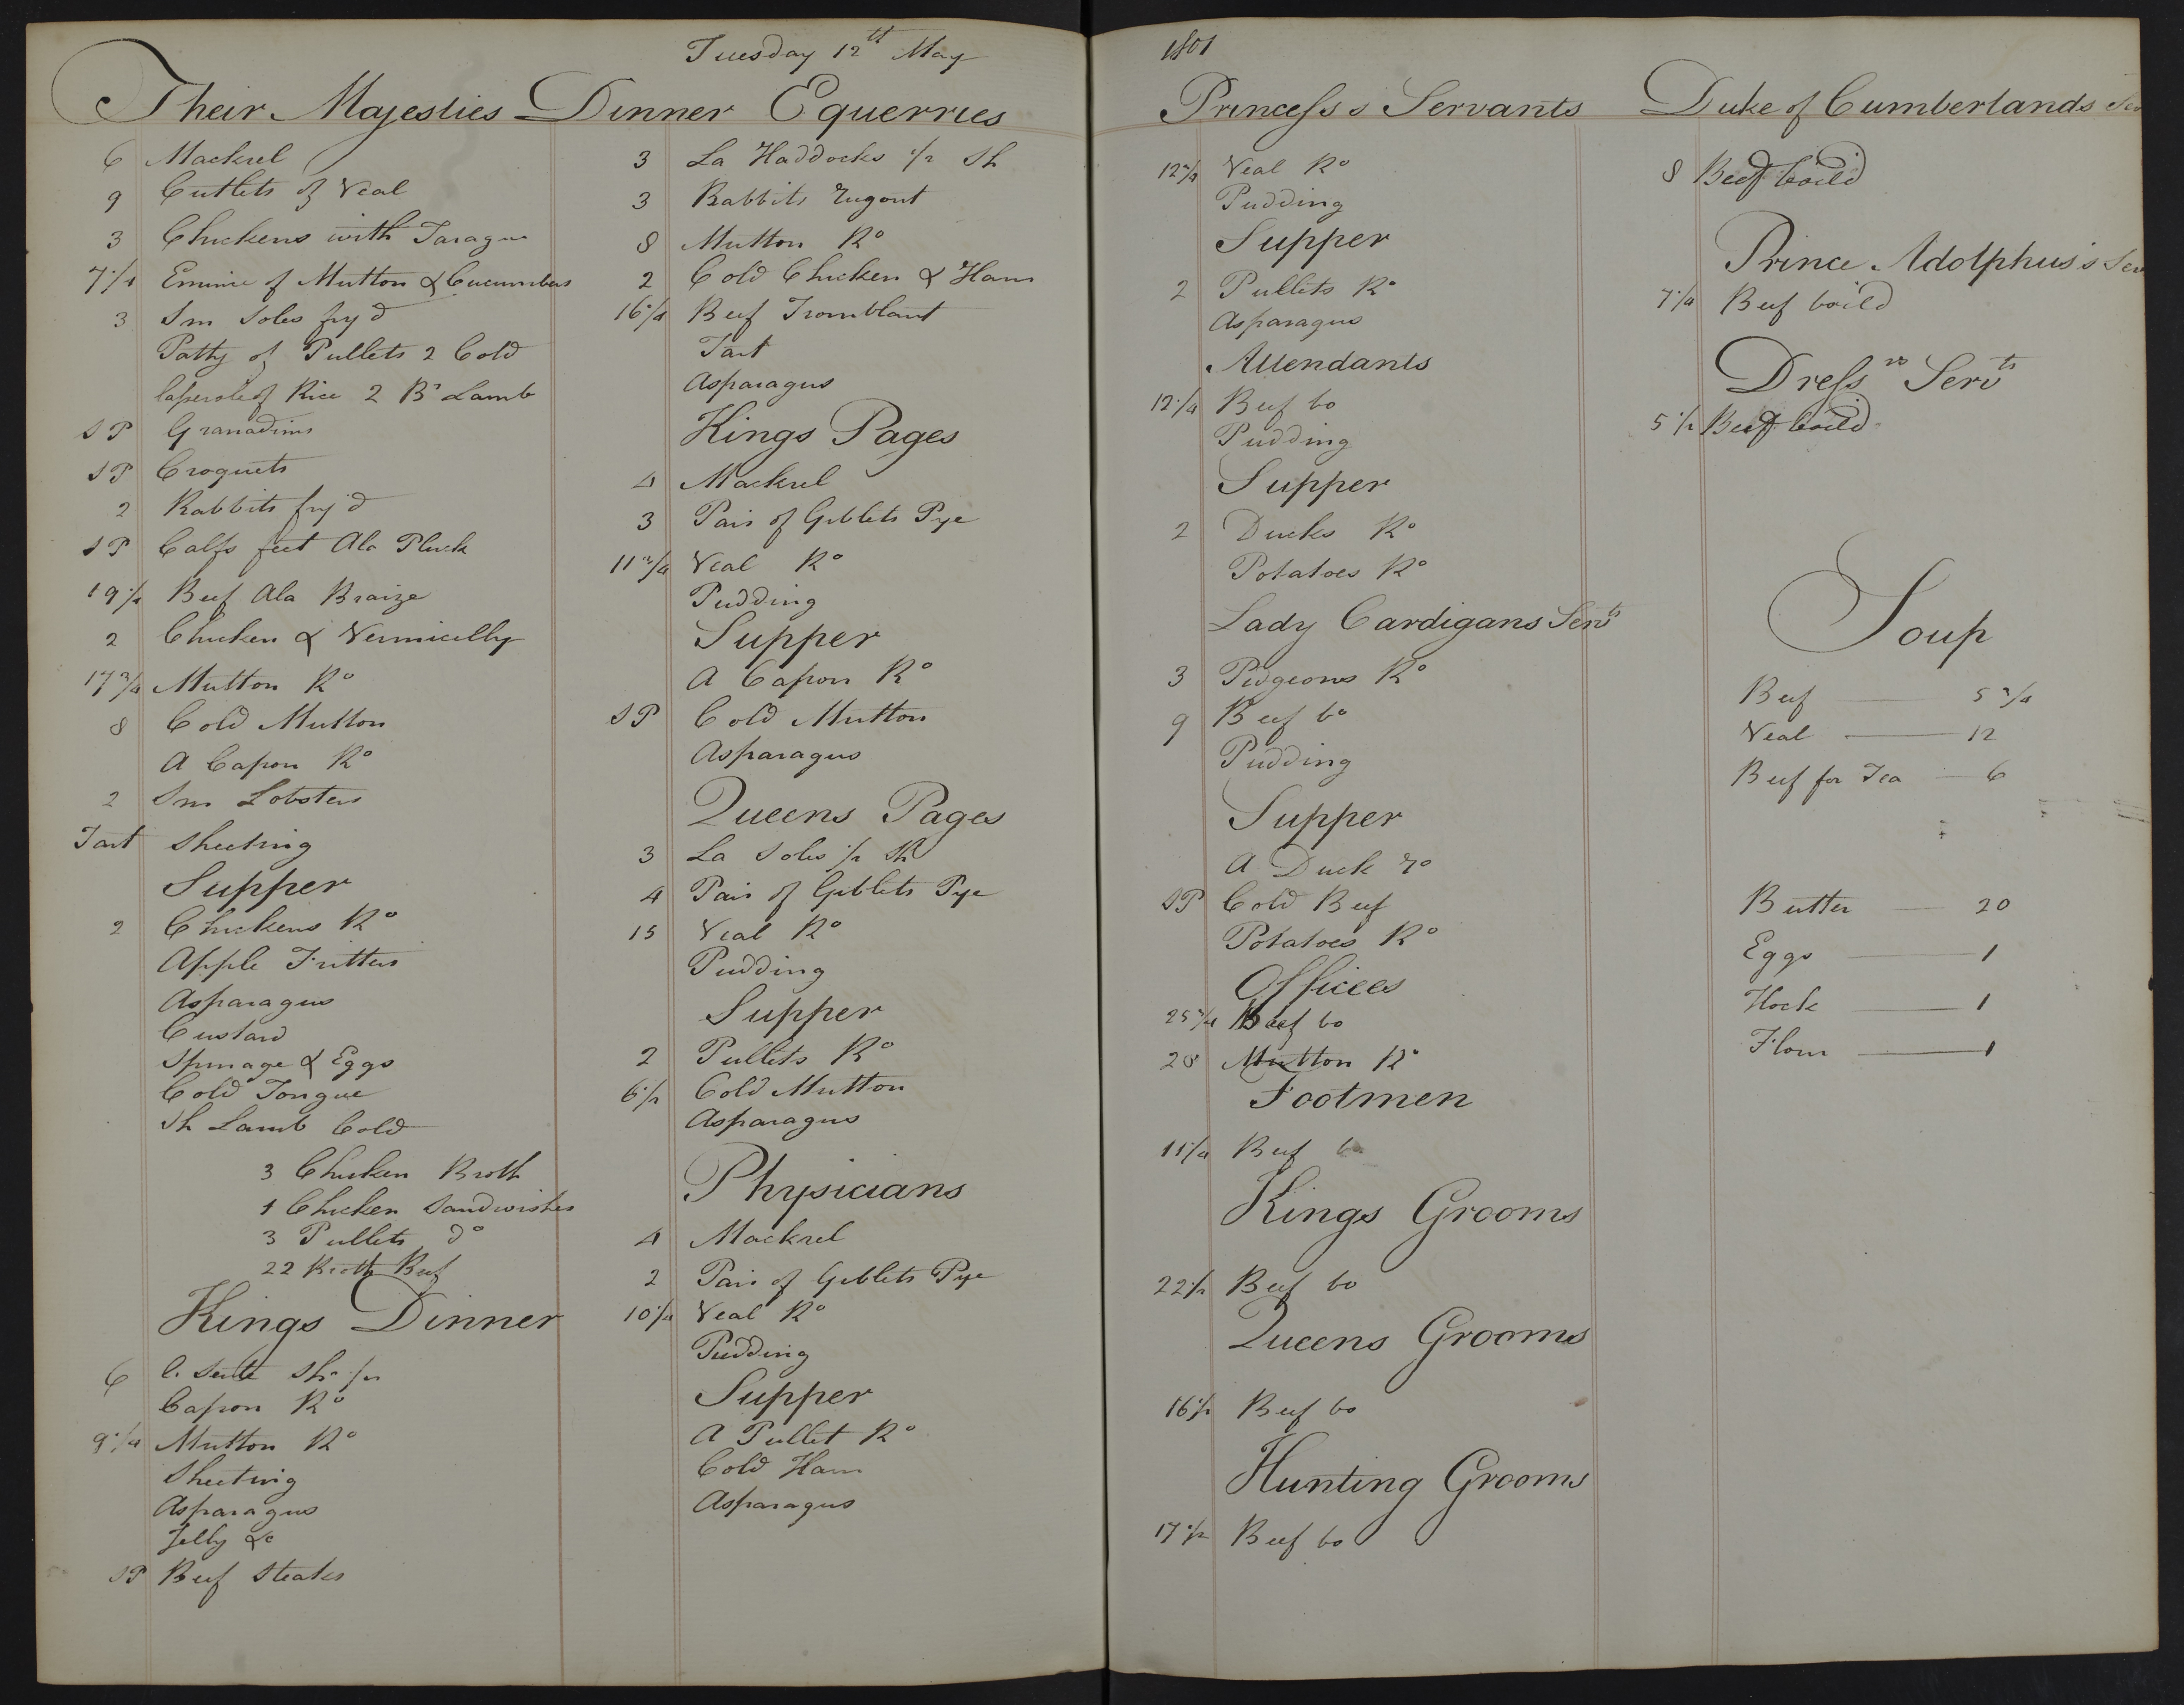 Tuesday 12th May
Their Majesties Dinner
6 Mackrel
9 Cutlets of Veal
3 Chickens with Taragon
7 1/4 Emince of Mutton & Cucumbers
3 Sm Soles fry'd
Patty of Pullets 2 Cold
Casserole of Rice 2 Br Lamb
SP Granadins
SP Croquets
2 Rabbits fry'd
SP Calfs feet Ala Pluck
Beef Ala Braize
2 Chicken & Vermicelly
17 3/4 Mutton Ro
8 Cold Mutton
A Capon Ro
2 Sm Lobsters
Tart Sheeting
Supper
2 Chickens Ro
Apple Fritters
Asparagus
Custard
Spinage & Eggs
Cold Tongue
Sh Lamb Cold
3 Chicken Broth
1 Chicken Sandwishes
3 Pullets do
22 Broth Beef
Kings Dinner
6
Capon Ro
9 1/4 Mutton Ro
Sheeting
Asparagus
Jelly &c
SP Beef Steaks
Equerries
3 La Haddocks 1/2 Sh
3 Rabbits Rugout
8 Mutton Ro
2 Cold Chicken & Ham
16 1/4 Beef Tromblant
Tart
Asparagus
Kings Pages
4 Mackrel
3 Pair of Giblets Pye
11 3/4 Veal Ro
Pudding
Supper
A Capon Ro
SP Cold Mutton
Asparagus
Queens Pages
3 La Soles 1/2 Sh
4 Pair of Giblets Pye
15 Veal Ro
Pudding
Supper
2 Pullets Ro
6 1/2 Cold Mutton
Asparagus
Physicians
4 Mackrel
2 Pair of Giblets Pye
10 1/4 Veal Ro
Pudding
Supper
A Pullet Ro
Cold Ham
Asparagus
1801
Princess's Servants
12 3/4 Veal Ro
Pudding
Supper
2 Pullets Ro
Asparagus
Attendants
12 1/4 Beef bo
Pudding
Supper
2 Ducks Ro
Potatoes Ro
Lady Cardigans Servts
3 Pidgeons Ro
9 Beef bo
Pudding
Supper
A Duck Ro
SP Cold Beef
Potatoes Ro
Offices
25 3/4 Beef bo
28 Mutton Ro
Footmen
11 1/4 Beef bo
Kings Grooms
22 1/2 Beef bo
Queens Grooms
16 1/2 Beef bo
Hunting Grooms
17 1/2 Beef bo
Duke of Cumberlands Ser
8 Beef boild
Prince Adolphus's Ser
7 1/4 Beef boild
Dressrs Servts
5 1/2 Beef boild
Soup
Beef 5 3/4
Veal 12
Beef for Tea 6
Butter 20
Eggs 1
Hock 1
Flour 1